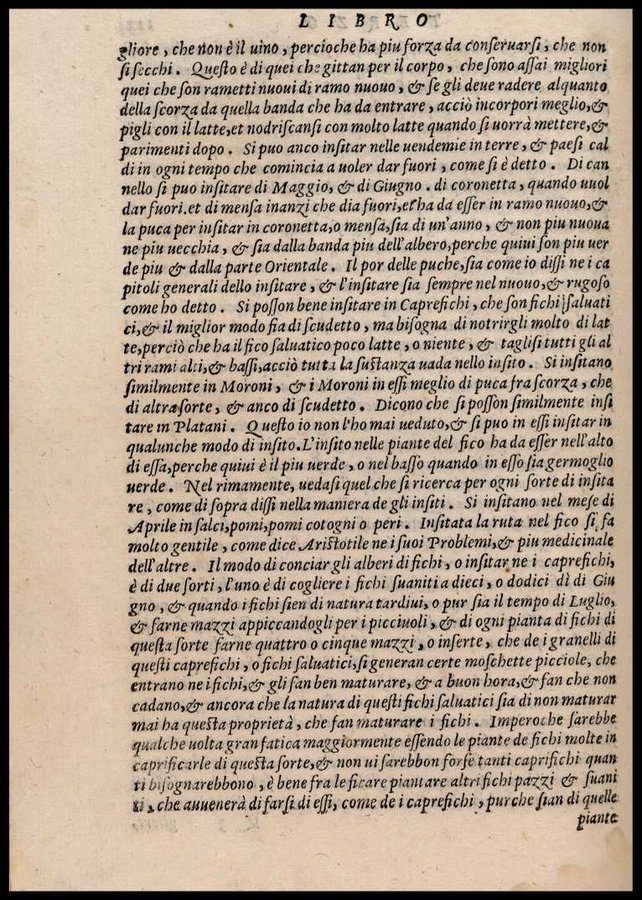 LIBRO
gliore, che non è il uino, percioche ha piu forza da conſeruarſi, che non
ſi ſecchi. Queſto è di quei che gittan per il corpo, che ſono aſſai migliori
quei che ſon rametti nuoui di ramo nuouo, & ſe gli deue radere alquanto
della ſcorza da quella banda che ha da entrare, acciò incorpori meglio, &
pigli con il latte, et nodriſcanſi con molto latte quando ſi uorrà mettere, &
parimenti dopo. Si puo anco inſitar nelle uendemie in terre, & paeſi cal
di in ogni tempo che comincia a uoler dar fuori, come ſi è detto. Di can
nello ſi puo inſitare di Maggio, & di Giugno. di coronetta, quando uuol
dar fuori. et di menſa inanzi che dia fuori, et ha da eſſer in ramo nuouo, &
la puca per inſitar in coronetta, o menſa, ſia di un'anno, & non piu nuoua
ne piu uecchia, & ſia dalla banda piu dell'albero, perche quiui ſon piu uer
de piu & dalla parte Orientale. Il por delle puche, ſia come io diſſi ne i ca
pitoli generali dello inſitare, & l'inſitare ſia ſempre nel nuouo, & rugoſo
come ho detto. Si poſſon bene inſitare in Caprefichi, che ſon fichi ſaluati
ci, & il miglior modo ſia di ſcudetto, ma biſogna di notrirgli molto di lat
te, perciò che ha il fico ſaluatico poco latte, o niente, & tagliſi tutti gli al
tri rami alti, & baſſi, acciò tutta la ſuſtanza uada nello inſito. Si inſitano
ſimilmente in Moroni, & i Moroni in eſſi meglio di puca fra ſcorza, che
di altra ſorte, & anco di ſcudetto. Dicono che ſi poſſon ſimilmente inſi
tare in Platani. Queſto io non l'ho mai ueduto, & ſi puo in eſſi inſitar in
qualunche modo di inſito. L'inſito nelle piante del fico ha da eſſer nell'alto
di eſſa, perche quiui è il piu uerde, o nel baſſo quando in eſſo ſia germoglio
uerde. Nel rimamente, uedaſi quel che ſi ricerca per ogni ſorte di inſita
re, come di ſopra diſſi nella maniera de gli inſiti. Si inſitano nel meſe di
Aprile in ſalci, pomi, pomi cotogni o peri. Inſitata la ruta nel fico ſi fa
molto gentile, come dice Ariſtotile ne i ſuoi Problemi, & piu medicinale
dell'altre. Il modo di conciar gli alberi di fichi, o inſitar ne i caprefichi,
è di due ſorti, l'uno è di cogliere i fichi ſuaniti a dieci, o dodici dì di Giu
gno, & quando i fichi ſien di natura tardiui, o pur ſia il tempo di Luglio,
& farne mazzi appiccandogli per i picciuoli, & di ogni pianta di fichi di
queſta ſorte farne quattro o cinque mazzi, o inſerte, che de i granelli di
queſti caprefichi, o fichi ſaluatici, ſi generan certe moſchette picciole, che
entrano ne i fichi, & gli fan ben maturare, & a buon hora, & fan che non
cadano, & ancora che la natura di queſti fichi ſaluatici ſia di non maturar
mai ha queſta proprietà, che fan maturare i fichi. Imperoche ſarebbe
qualche uolta gran fatica maggiormente eſſendo le piante de fichi molte in
caprificarle di queſta ſorte, & non ui ſarebbon forſe tanti caprifichi quan
ti biſognarebbono, è bene fra le ficare piantare altri fichi pazzi & ſuani
ti, che auuenerà di farſi di eſſi, come de i caprefichi, pur che ſian di quelle
piante